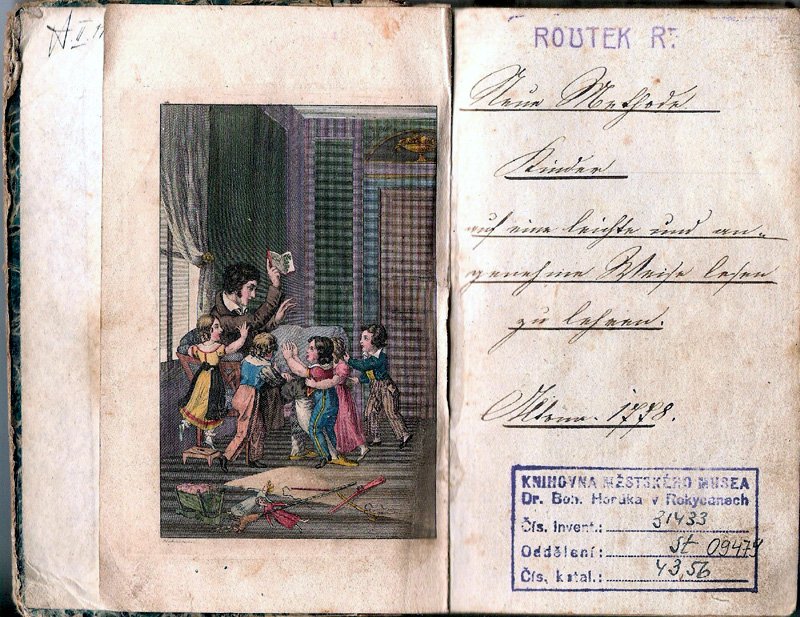 A II
ROUTEK RT.
Neue Methode
Kinder
auf eine leichte und an-
genehme Weise lesen
zu lehren.
Altona. 1778.
KNIHOVNA MĚSTSKÉHO MUSEA
Dr. Boh. Horáka v Rokycanech
Čís. invent.: 31433
Oddělení: St 09479
Čís. katal.: 43,56